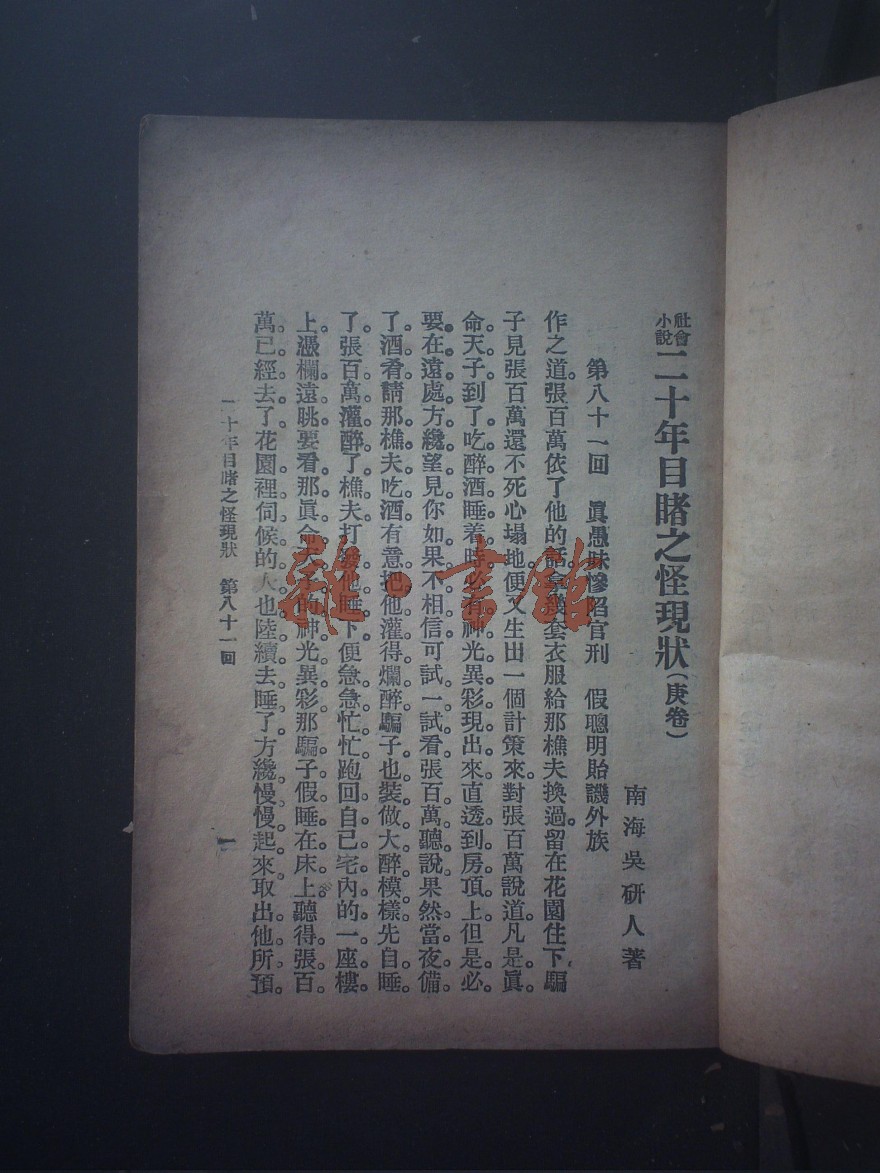 社會小說 二十年目睹之怪現狀（庚卷）
南海吳研人著
第八十一回　眞愚昧慘陷官刑　假聰明貽譏外族
作之道張百萬依了他的話拿幾套衣服給那樵夫換過。留在花園住下騙
子見張百萬還不死心塌地便又生出一個計策來對張百萬說道凡是眞
命天子到了吃醉酒睡着時必有神光異彩現出來直透到房頂上但是必
要在遠處方纔望見你如果不相信可試一試看張百萬聽說果然當夜備
了酒肴請那樵夫吃酒有意把他灌得爛醉騙子也裝做大醉模樣先自睡
了張百萬灌醉了樵夫打發他睡下便急急忙忙跑回自己宅內的一座樓
上憑欄遠眺要看那眞命天子的神光異彩那騙子假睡在床上聽得張百
萬已經去了花園裡伺候的人也陸續去睡了方纔慢慢起來取出他所預
二十年目睹之怪現狀　第八十一回
一
雜·書館